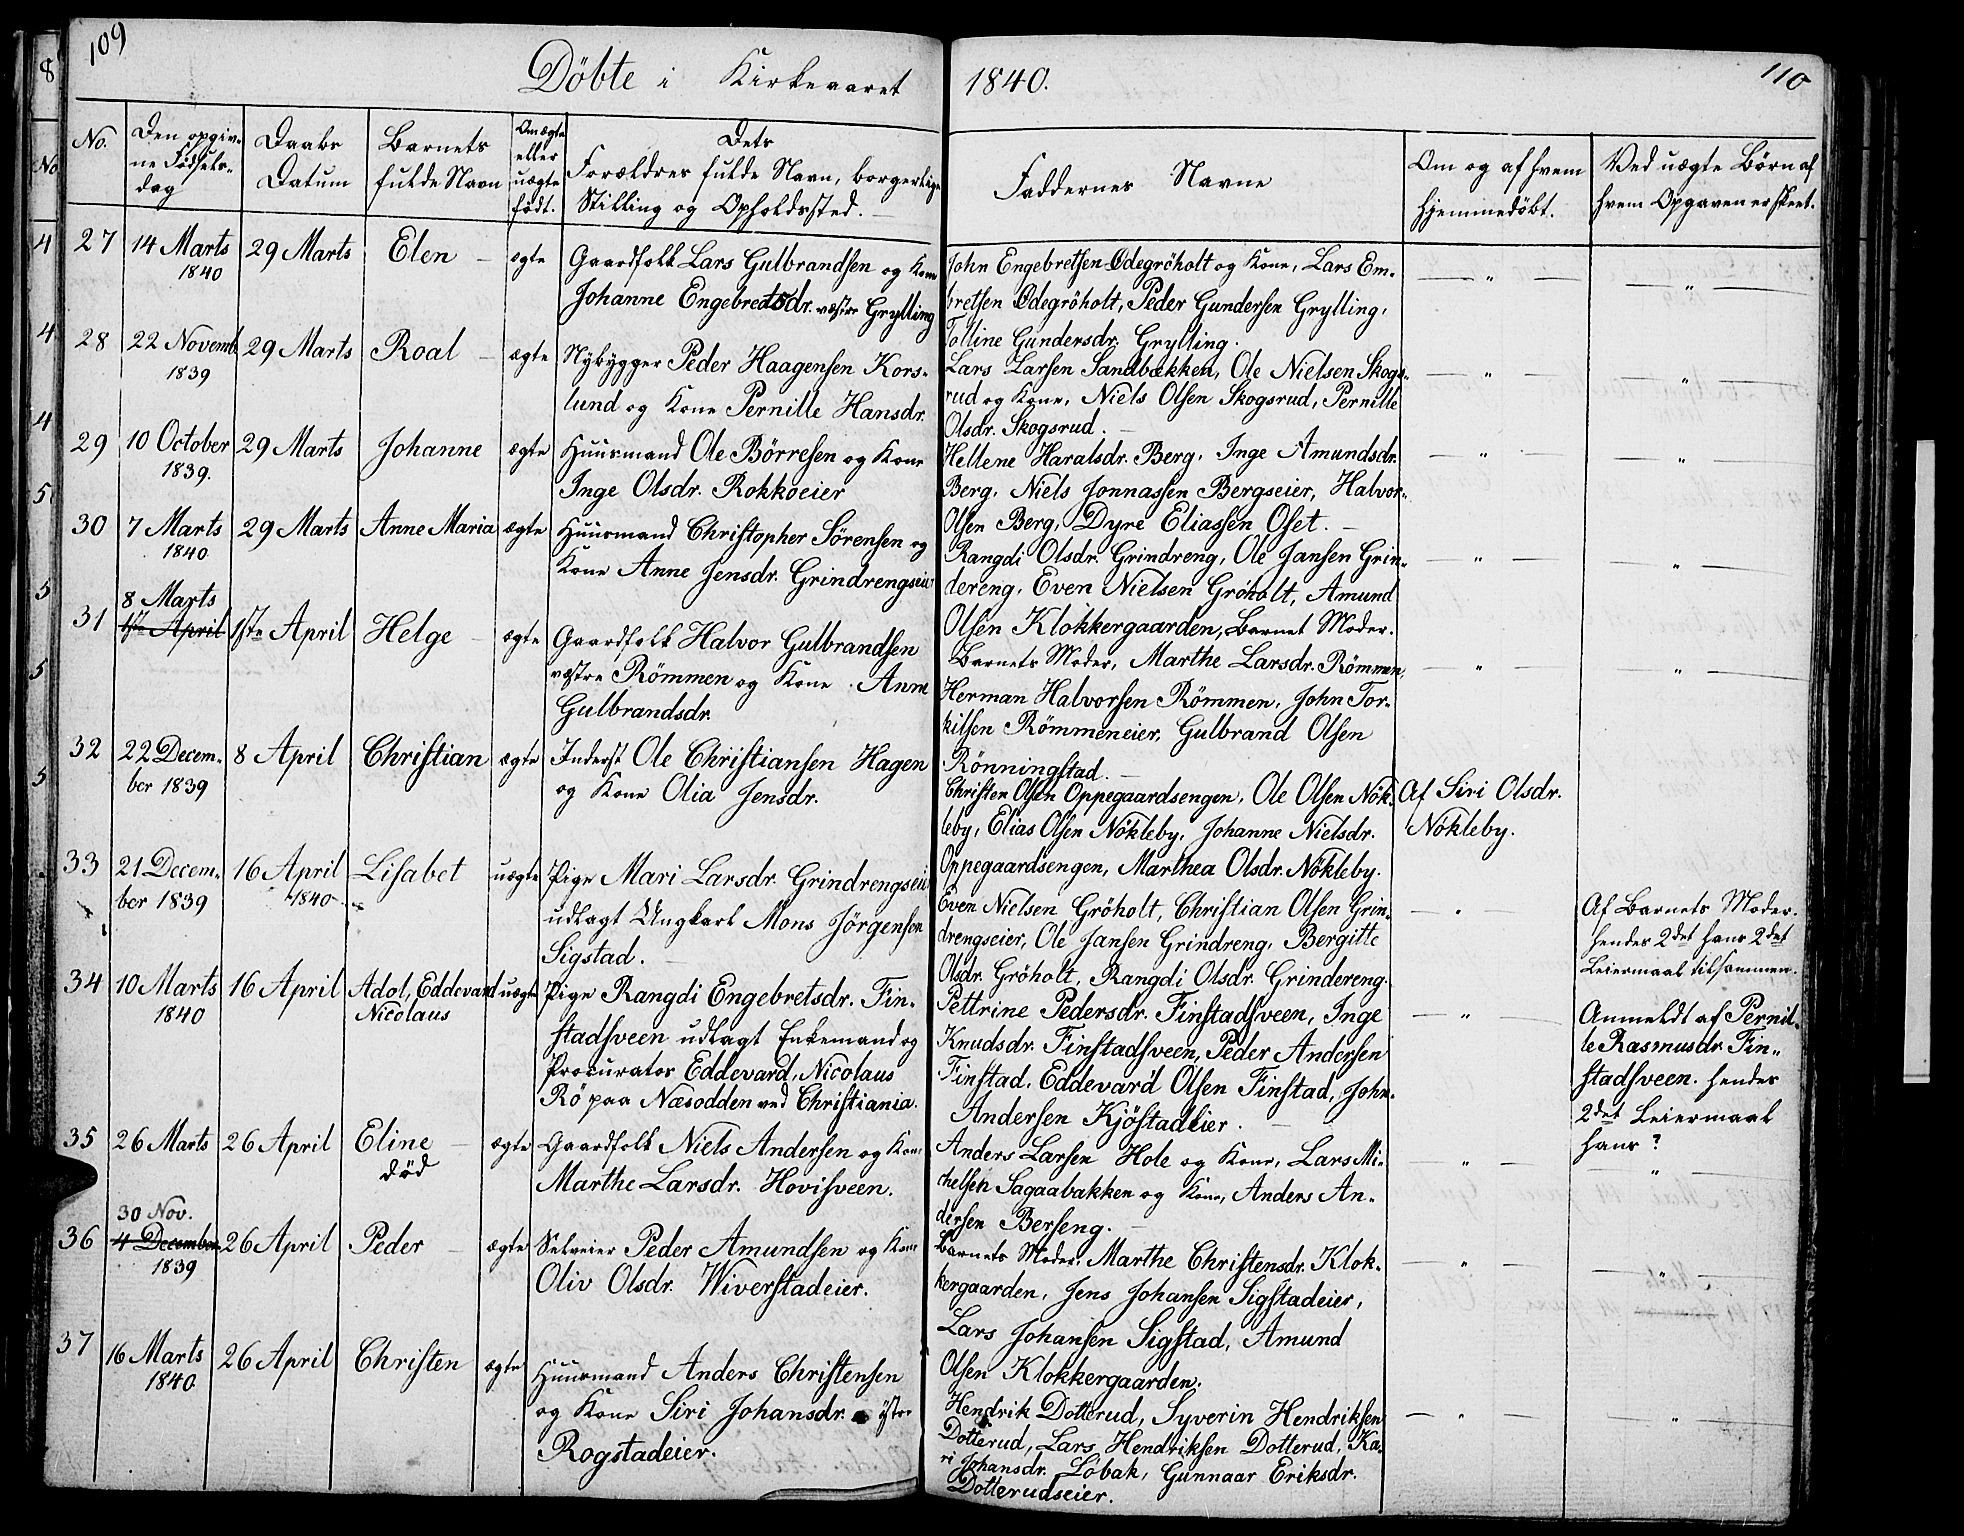 109
Döbte i Kirkeaaret 1840.
110
No.
Den opgiv-
ne Födsels-
dag
Daabs
Datum
Barnets
fulde Navn
Om ægte
eller
uægte
födt.
Dets
Forældres fulde Navn, borgerlige
Stilling og Opholdssted.
Faddernes Navne
Om og af hvem
hjemmedöbt.
Ved uægte Börn af
hvem Opgaven er skeet.
27 14 Marts 29 Marts Elen - ægte Gaardfolk Lars Gulbrandsen og Kone
1840
Johanne Engebretsdr. vestre Grylling
John Engebretsen Ödegröholt og Kone, Lars Em-
bretsen Ödegröholt, Peder Gundersen Grylling,
Tolline Gundersdr. Grylling.
28 22 Novemb. 29 Marts Roal - ægte Nybygger Peder Haagensen Kors-
1839
lund og Kone Pernille Hansdr.
Lars Larsen Sandbækken, Ole Nielsen Skogs-
rud og Kone, Niels Olsen Skogsrud, Pernille
Olsdr. Skogsrud.
29 10 October 29 Marts Johanne ægte Huusmand Ole Börresen og Kone
1839.
Inge Olsdr. Rokkoeier
Hellene Haralsdr. Berg, Inge Amundsdr.
Berg, Niels Jonnassen Bergseier, Halvor
Olsen Berg, Dyre Eliassen Oset.
30 7 Marts 29 Marts Anne Maria ægte Huusmand Christopher Sörensen og
1840
Kone Anne Jensdr. Grindrengseier
Rangdi Olsdr. Grindreng, Ole Jansen Grin-
dereng, Even Nielsen Gröholt, Amund
Olsen Klokkergaarden, Barnet Moder.
8 Marts
31 1ste April 1ste April Helge - ægte Gaardfolk Halvor Gulbrandsen
vestre Römmen og Kone Anne
Gulbrandsdr.
Barnets Moder, Marthe Larsdr. Römmen,
Herman Halvorsen Römmen, John Tor-
kilsen Römmeneier, Gulbrand Olsen
Rönningstad.
32 22 Decem- 8 April Christian ægte Inderst Ole Christiansen Hagen
ber 1839
og Kone Olia Jensdr.
Christen Olsen Oppegaardsengen, Ole Olsen Nök-
leby, Elias Olsen Nökleby, Johanne Nielsdr.
Oppegaardsengen, Marthea Olsdr. Nökleby.
Af Siri Olsdr.
Nökleby.
33 21 Decem- 16 April Lisabet uægte Pige Mari Larsdr. Grindrengseier
ber 1839 1840
udlagt Ungkarl Mons Jörgensen
Sigstad.
Even Nielsen Gröholt, Christian Olsen Grin-
drengseier, Ole Jansen Grindreng, Bergitte
Olsdr. Gröholt, Rangdi Olsdr. Grindereng.
Af Barnets Moder.
hendes 2det hans 2det
Leiermaal tilsammen.
34 10 Marts 16 April Adol, Eddevard uægte Pige Rangdi Engebretsdr. Fin-
1840 Nicolaus
stadsveen udlagt Enkemand og
Procurator Eddevard, Nicolaus
Rö paa Næsodden ved Christiania.
Pettrine Pedersdr. Finstadsveen, Inge
Knudsdr. Finstadsveen, Peder Andersen
Finstad, Eddevard Olsen Finstad, John
Andersen Kjöstadeier.
Anmeldt af Pernil-
le Rasmusdr. Fin-
stadsveen. hendes
2det Leiermaal
hans?
35 26 Marts 26 April Eline - ægte Gaardfolk Niels Andersen og Kone
död
Marthe Larsdr. Hovisveen.
Anders Larsen Hole og Kone, Lars Mi-
chelsen Sagaabakken og Kone, Anders An-
dersen Berseng.
30 Nov.
36 4 December 26 April Peder - ægte Selveier Peder Amundsen og Kone
1839
Oliv Olsdr. Wiverstadeier.
Barnets Moder, Marthe Christensdr. Klok-
kergaarden, Jens Johansen Sigstadeier,
Lars Johansen Sigstad, Amund
Olsen Klokkergaarden.
37 16 Marts 26 April Christen ægte Huusmand Anders Christensen
1840
og Kone Siri Johansdr. östre
Rogstadeier.
Hendrik Dotterud, Syverin Hendriksen
Dotterud, Lars Hendriksen Dotterud, Ka-
ri Johansdr. Löbak, Gunnaar Eriksdr.
Dotterudseier.